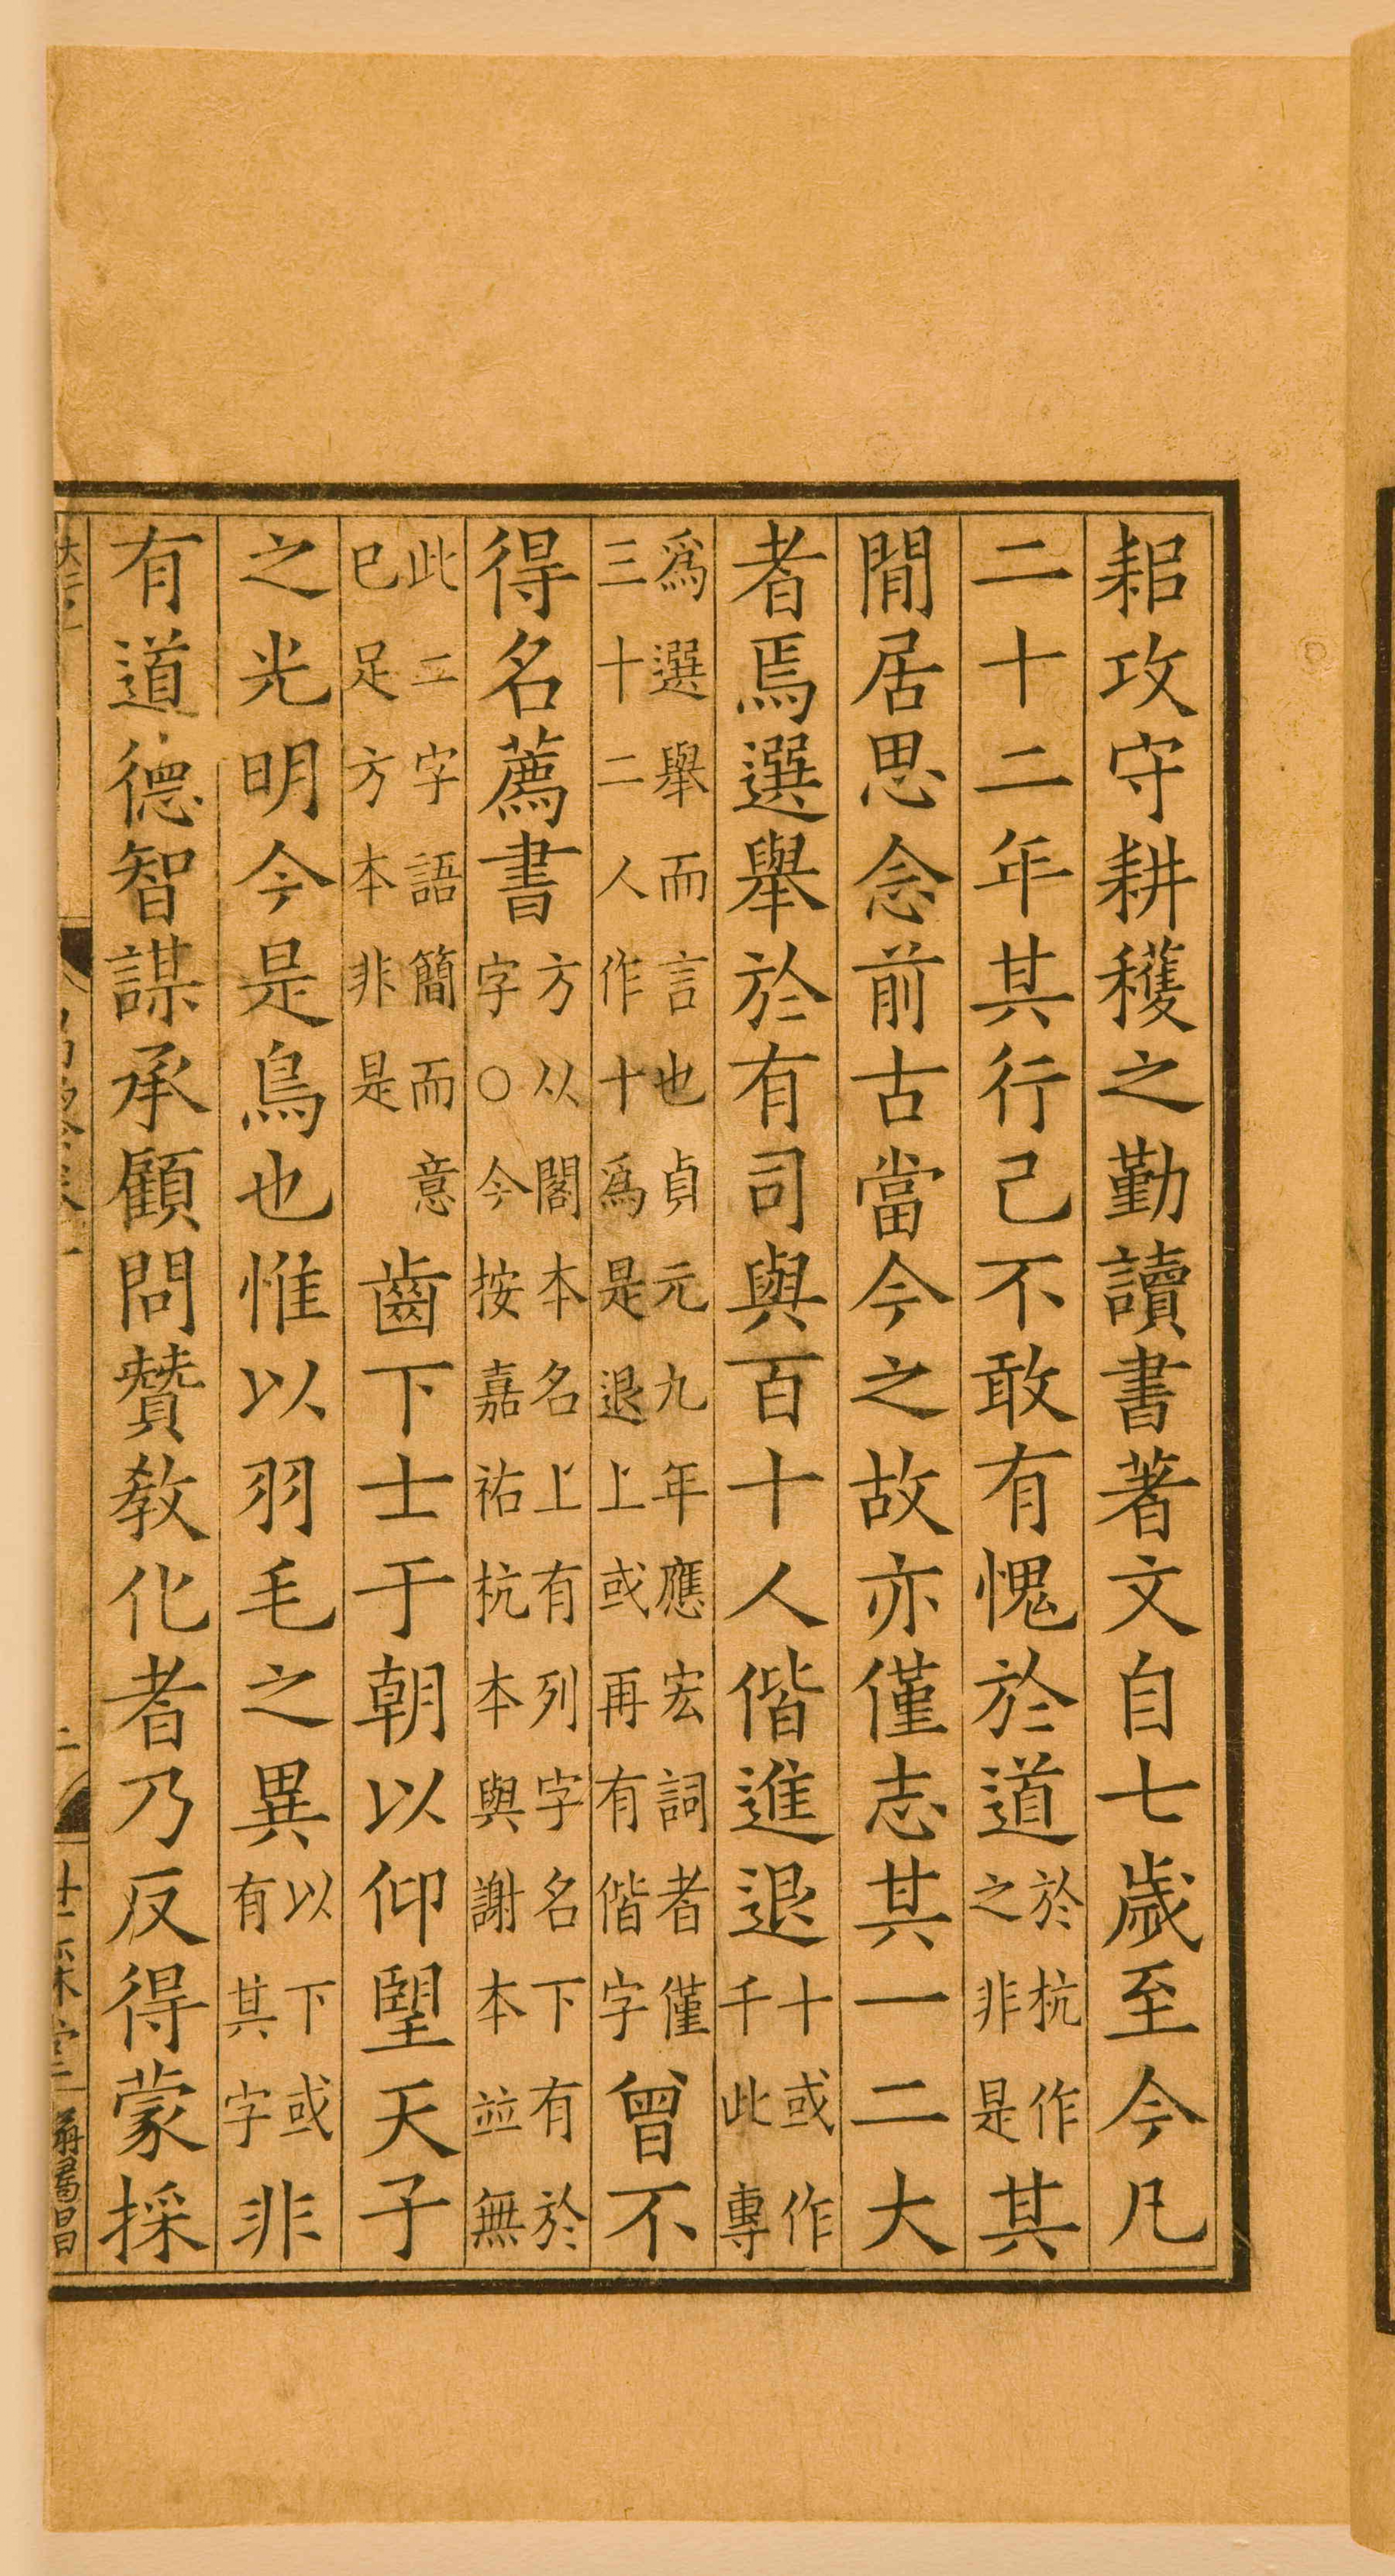 耜攻守耕穫之勤讀書著文自七歲至今凡
二十二年其行己不敢有愧於道於杭作之非是其
閒居思念前古當今之故亦僅志其一二大
者焉選舉於有司與百十人偕進退十或作千此專
爲選舉而言也貞元九年應宏詞者僅三十二人作十爲是退上或再有偕字曾不
得名薦書方从閣本名上有列字名下有於字○今按嘉祐杭本與謝本並無
此二字語簡而意已足方本非是齒下士于朝以仰望天子
之光明今是鳥也惟以羽毛之異以下或有其字非
有道德智謀承顧問贊敎化者乃反得蒙採